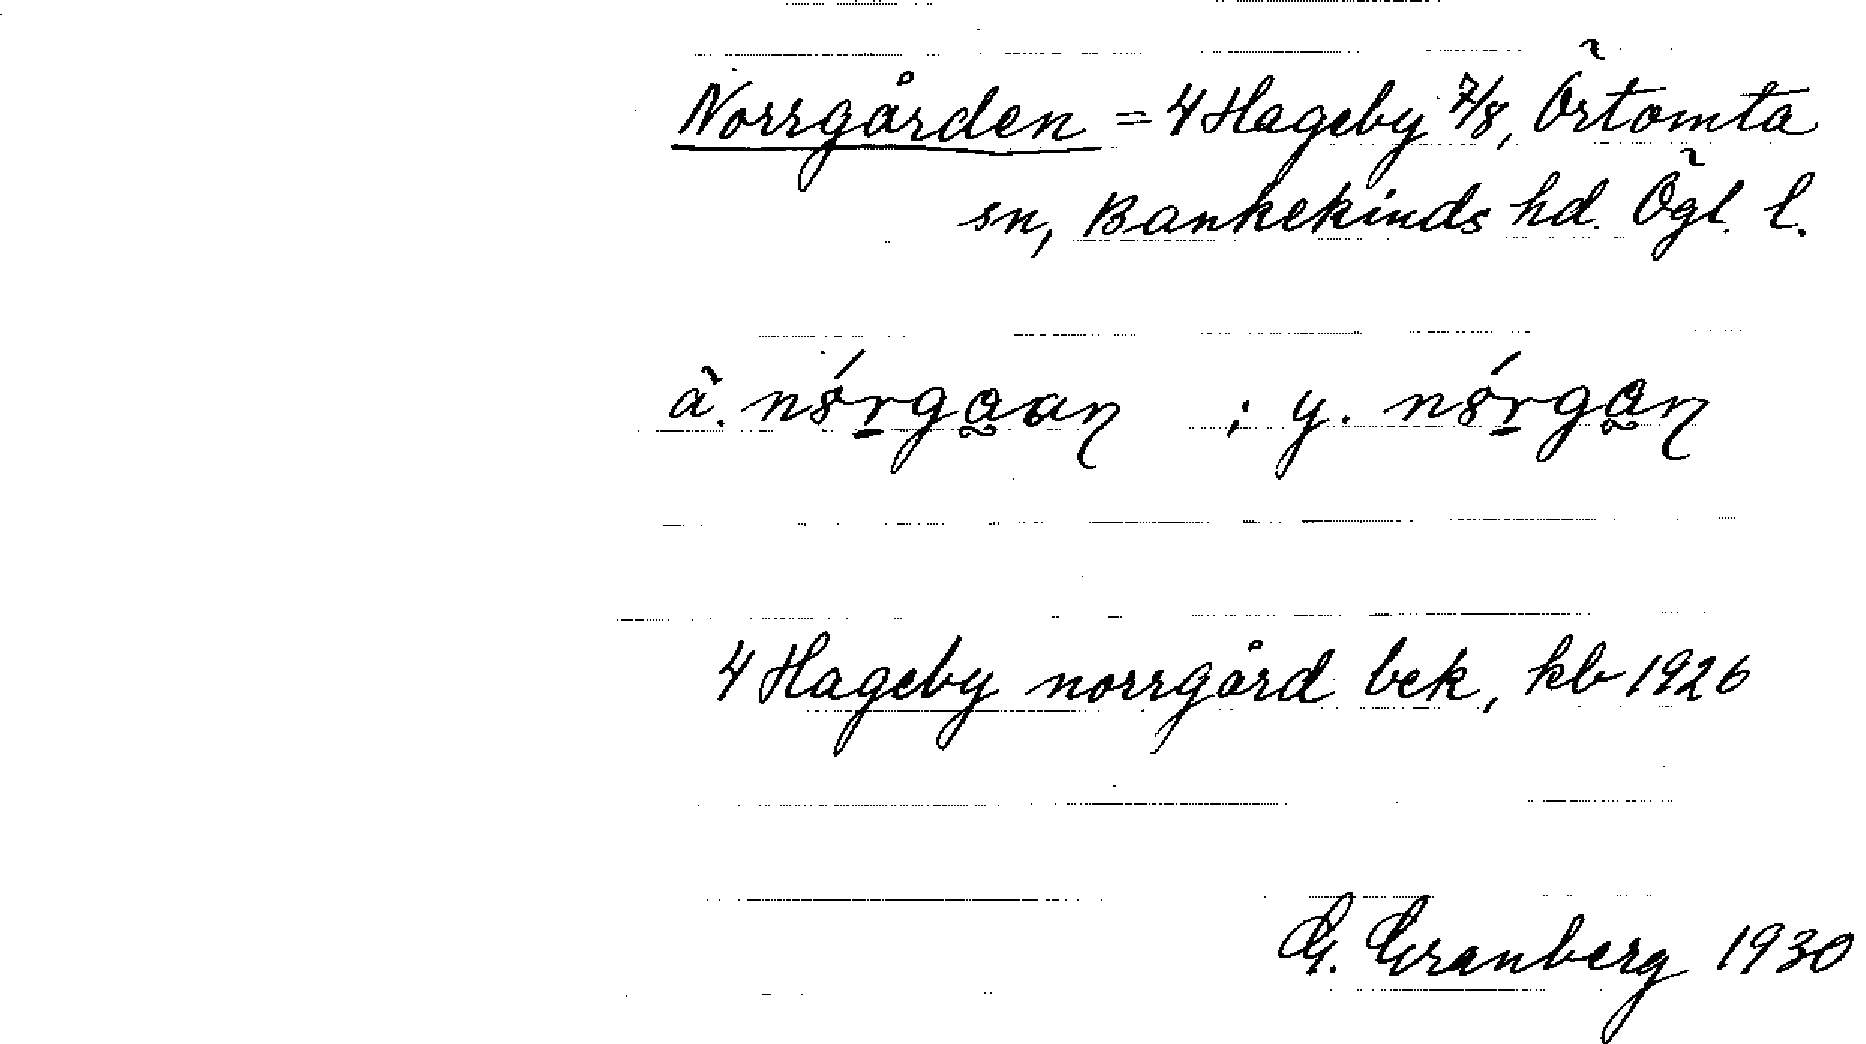 Norrgården = 4 Hageby 7/8, Örtomta
sn, Bankekinds hd. Ögl. l.
ä. nórgaan ; y. nórgan
4 Hageby norrgård bek, kb 1926
G. Granberg 1930